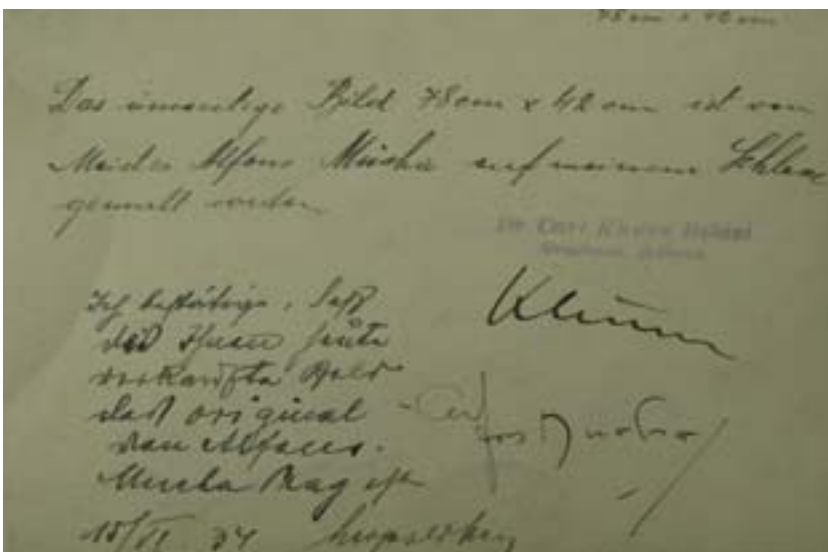 78 cm x 42 cm
Das umseitige Bild 78cm x 42 cm ist von
Meister Alfons Mucha auf meinem Schloss
gemalt worden
Dr. Carl Khuen Belasi
Ich bestätige, daß
das Ihnen heute
verkaufte Bild
das original
von Alfons
Mucha Prag ist
Khuen
15/VI 34